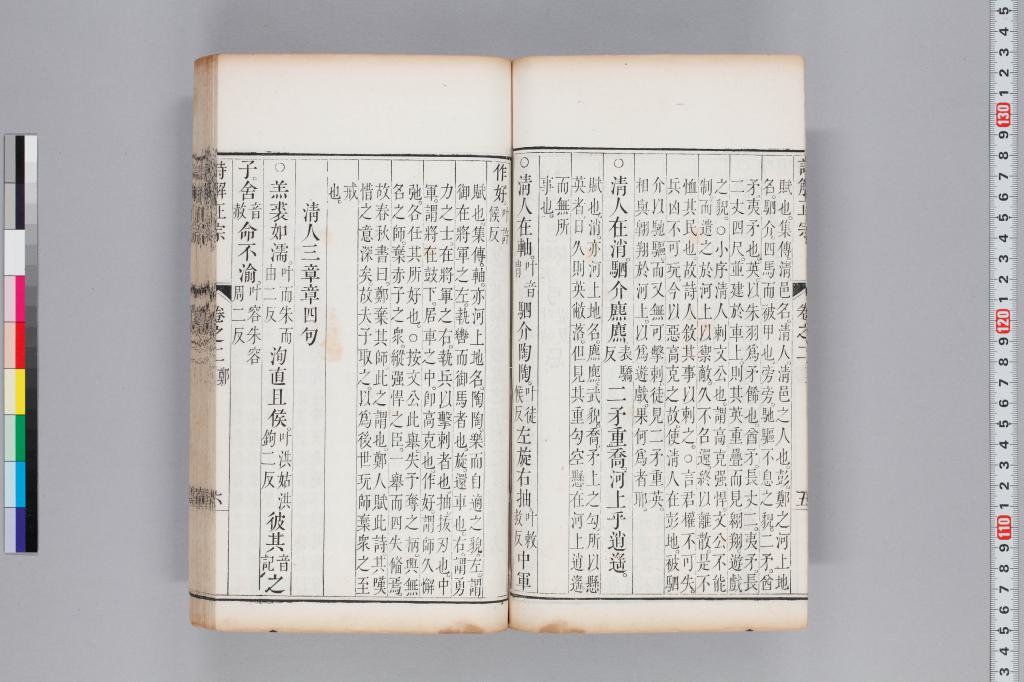 賦也。集傳。清邑名。清人清邑之人也。彭。鄭之河上地
名。駟介四馬而被甲也。旁旁。馳驅不息之貌。二矛。酋
矛。夷矛也。英以朱羽爲矛餙也。酋矛長丈二。夷矛長
二丈四尺。並建於車上。則其英重疊而見。翱翔。遊戲
之貌。○小序。清人刺文公也。謂高克强悍。文公不能
制而遣之於河上以禦敵。久不名還。終以離散。是不
恤其民也。故詩人敘其事以刺之。○言君權不可失。
兵凶不可玩。今以惡高克之故。使清人在彭地。被駟
介以馳驅。而又無可擊刺。徒見二矛重英。
相與翱翔於河上。以爲遊戲。果何爲者耶。
○清人在消。駟介麃麃。表驕反二矛重喬。河上乎逍遙。
賦也。消亦河上地名。麃麃。武貌。喬。矛上之勾。所以懸
英者。日久則英敝落。但見其重勾空懸。在河上逍遙
而無所
事也。
○清人在軸。叶音謂駟介陶陶。叶徒候反左旋右抽。叶敕救反中軍
作好。叶許候反
賦也。集傳。軸。亦河上地名。陶陶。樂而自適之貌。左。謂
御在將軍之左。執轡而御馬者也。旋。還車也。右。謂勇
力之士。在將軍之右。執兵以擊刺者也。抽。拔刃也。中
軍。謂將在鼓下。居車之中。卽高克也。作好。謂師久懈
弛。各任其所好也。○按文公此舉。失予奪之柄。興無
名之師。棄赤子之衆。縱强悍之臣。一舉而四失偹焉。
故春秋書曰。鄭棄其師。此之謂也。鄭人賦此詩。其嘆
惜之意深矣。故夫子取之。以爲後世玩師棄衆之至
戒
也。
清人三章章四句
○羔裘如濡。叶而朱而由二反洵直且侯。叶洪姑洪鉤二反彼其音記之
子。舍音赦命不渝。叶容朱容周二反
詩解正宗
卷之二 鄭
六
詩解正宗
卷之二
五